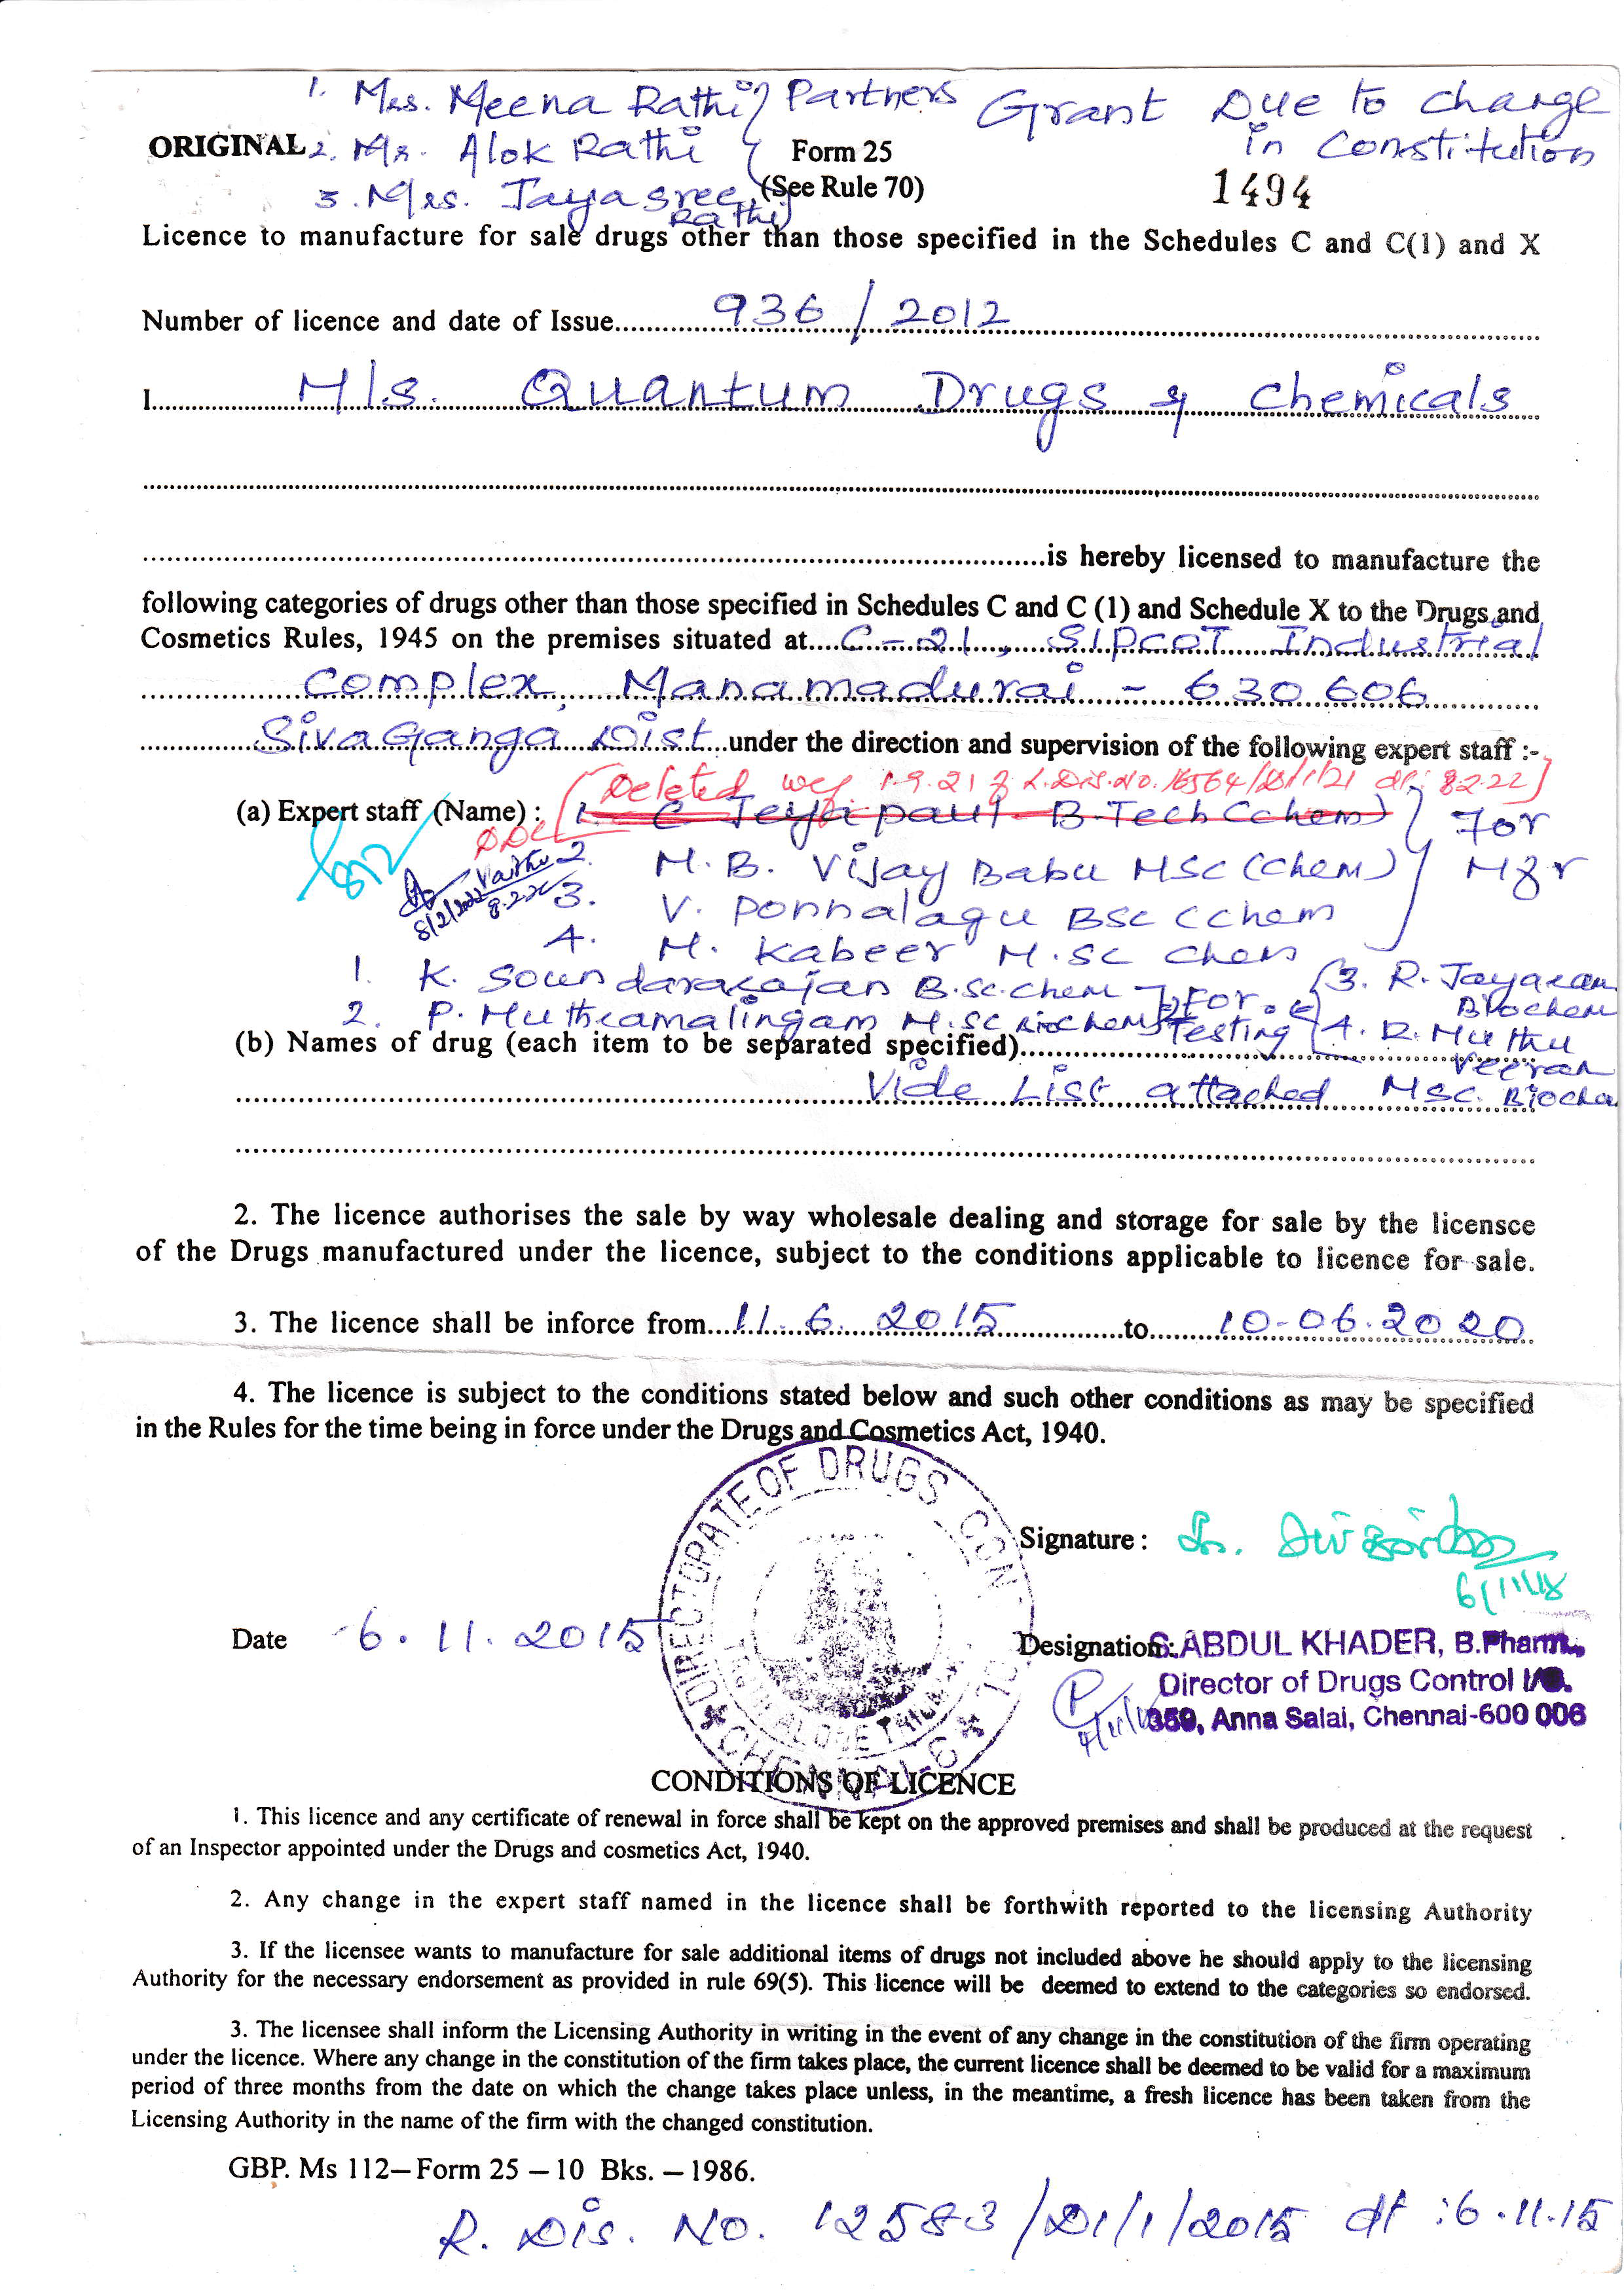 1. Mrs. Meena Rathi } Partners Grant Due to change
in Constitution
ORIGINAL 2. Mr. Alok Rathi Form 25
3. Mrs. Jayasree Rathi (See Rule 70) 1494
Licence to manufacture for sale drugs other than those specified in the Schedules C and C(1) and X
Number of licence and date of Issue 936 / 2012
I M/s. Quantum Drugs & Chemicals
is hereby licensed to manufacture the
following categories of drugs other than those specified in Schedules C and C (1) and Schedule X to the Drugs and
Cosmetics Rules, 1945 on the premises situated at C-21, SIPCOT Industrial
Complex, Manamadurai - 630 606
SivaGanga Dist under the direction and supervision of the following expert staff :-
[Deleted wef 1.9.21 dt: 8.2.22]
(a) Expert staff (Name) : 1. C Jeyapaul B-Tech (chem) } For
2. M. B. Vijay Babu MSc (chem) Mfr
3. V. Ponnalagu BSc (chem
8/2/2022 8.2.22
4. M. Kabeer M.Sc Chem
1. K. Soundararajan B.Sc. chem } For { 3. R. Jayaram
Biochem
2. P. Muthuramalingam M.Sc Biochem Testing 4. R. Muthu
Veeran
(b) Names of drug (each item to be separated specified)
Vide List attached MSc. Biochem
2. The licence authorises the sale by way wholesale dealing and storage for sale by the licensce
of the Drugs manufactured under the licence, subject to the conditions applicable to licence for sale.
3. The licence shall be inforce from 11.6.2015 to 10-06.2020
4. The licence is subject to the conditions stated below and such other conditions as may be specified
in the Rules for the time being in force under the Drugs and Cosmetics Act, 1940.
DIRECTORATE OF DRUGS CON OL
CHENNAI-6
Signature :
6/11/15
Date 6.11.2015
Designation: S.ABDUL KHADER, B.Pharm.,
Director of Drugs Control I/C.
359, Anna Salai, Chennai-600 006
CONDITIONS OF LICENCE
1. This licence and any certificate of renewal in force shall be kept on the approved premises and shall be produced at the request
of an Inspector appointed under the Drugs and cosmetics Act, 1940.
2. Any change in the expert staff named in the licence shall be forthwith reported to the licensing Authority
3. If the licensee wants to manufacture for sale additional items of drugs not included above he should apply to the licensing
Authority for the necessary endorsement as provided in rule 69(5). This licence will be deemed to extend to the categories so endorsed.
3. The licensee shall inform the Licensing Authority in writing in the event of any change in the constitution of the firm operating
under the licence. Where any change in the constitution of the firm takes place, the current licence shall be deemed to be valid for a maximum
period of three months from the date on which the change takes place unless, in the meantime, a fresh licence has been taken from the
Licensing Authority in the name of the firm with the changed constitution.
GBP. Ms 112–Form 25 – 10 Bks. – 1986.
R. Dis. No. 12583/D1/1/2015 dt : 6.11.15